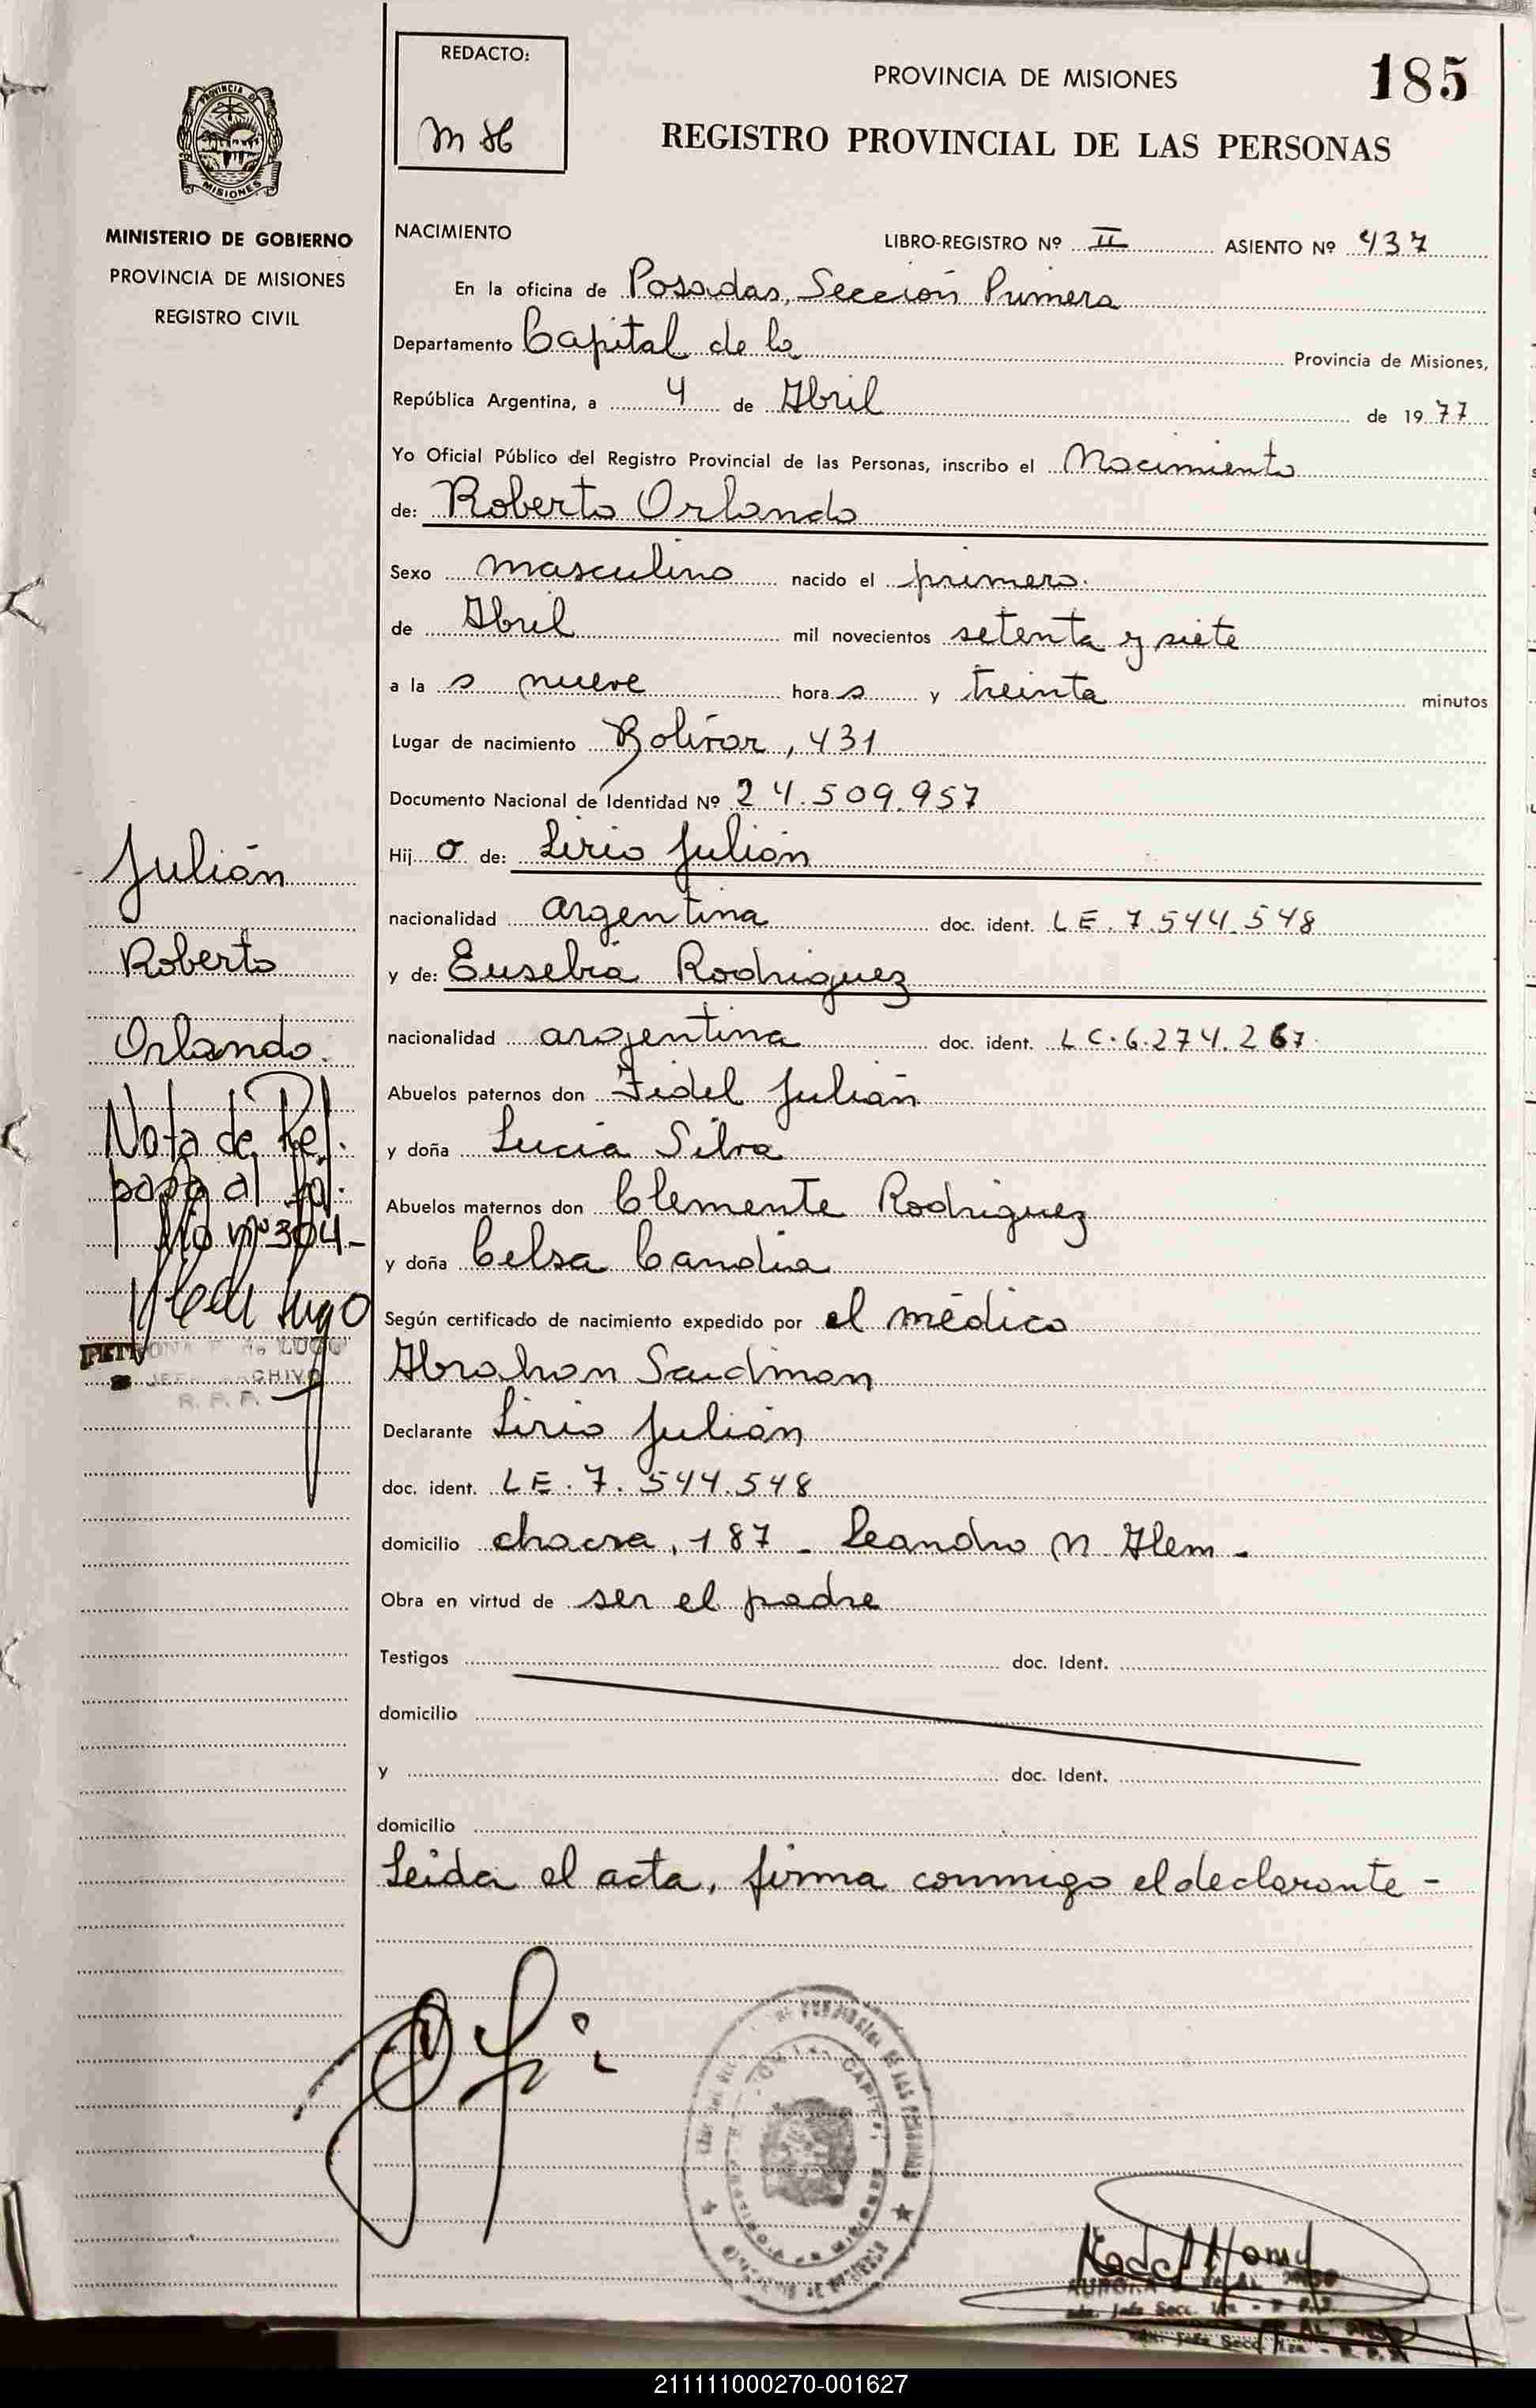 REDACTO:
M H
PROVINCIA DE MISIONES
185
REGISTRO PROVINCIAL DE LAS PERSONAS
PROVINCIA DE
MISIONES
MINISTERIO DE GOBIERNO
PROVINCIA DE MISIONES
REGISTRO CIVIL
NACIMIENTO
LIBRO-REGISTRO Nº II ASIENTO Nº 437
En la oficina de Posadas, Sección Primera
Departamento Capital de la Provincia de Misiones,
República Argentina, a 4 de Abril de 1977
Yo Oficial Público del Registro Provincial de las Personas, inscribo el Nacimiento
de: Roberto Orlando
Sexo masculino nacido el primero.
de Abril mil novecientos setenta y siete
a la s nueve hora s y treinta minutos
Lugar de nacimiento Bolívar, 431
Documento Nacional de Identidad Nº 24.509.957
Hij o de: Lirio Julián
nacionalidad argentina doc. ident. LE. 7.544.548
y de: Eusebia Rodriguez
nacionalidad argentina doc. ident. LC. 6.274.267.
Abuelos paternos don Fidel Julián
y doña Lucia Silva
Abuelos maternos don Clemente Rodriguez
y doña Celsa Candia
Según certificado de nacimiento expedido por el médico
Abrahan Saidman
Declarante Lirio Julián
doc. ident. LE. 7.544.548
domicilio chacra, 187 - Leandro N. Alem -
Obra en virtud de ser el padre
Testigos doc. Ident.
domicilio
y doc. Ident.
domicilio
Leida el acta, firma conmigo el declarante -
Julián
Roberto
Orlando.
Nota de Ref.
pasa al fol.
nº 304-
LUGO
JEFE ARCHIVO
R. P. P.
211111000270-001627